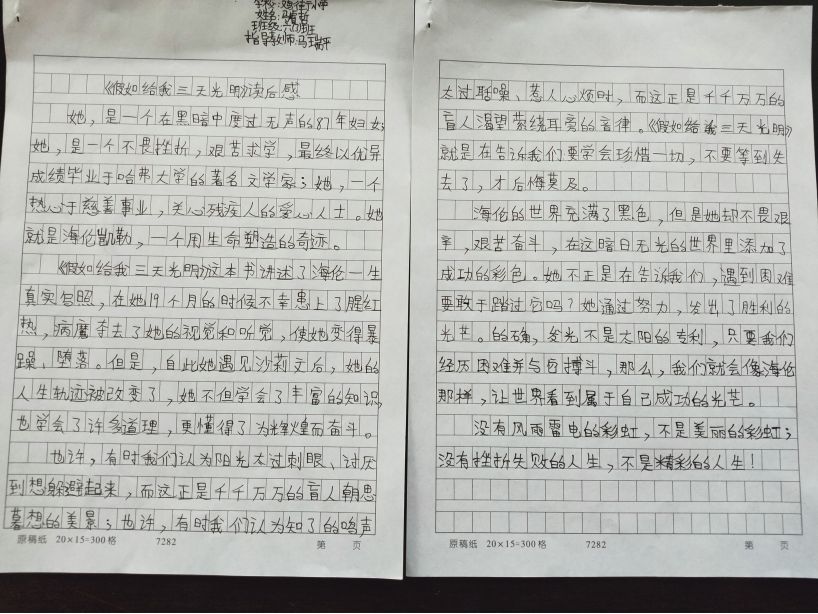 指导教师:马瑞平
《假如给我三天光明》读后感
她，是一个在黑暗中度过无声的87年妇女；
她，是一个不畏挫折，艰苦求学，最终以优异
成绩毕业于哈弗大学的著名文学家；她，一个
热心于慈善事业，关心残疾人的爱心人士。她
就是海伦凯勒，一个用生命塑造的奇迹。
《假如给我三天光明》这本书讲述了海伦一生
真实写照，在她19个月的时候不幸患上了腥红
热，病魔夺去了她的视觉和听觉，使她变得暴
躁、堕落。但是，自此她遇见沙莉文后，她的
人生轨迹被改变了，她不但学会了丰富的知识，
也学会了许多道理，更懂得了为辉煌而奋斗。
也许，有时我们认为阳光太过刺眼、讨厌
到想躲避起来，而这正是千千万万的盲人朝思
暮想的美景；也许，有时我们认为知了的鸣声
原稿纸 20×15=300格 7282 第 页
太过聒噪、惹人心烦时，而这正是千千万万的
盲人渴望萦绕耳旁的音律。《假如给我三天光明》
就是在告诉我们要学会珍惜一切，不要等到失
去了，才后悔莫及。
海伦的世界充满了黑色，但是她却不畏艰
辛，艰苦奋斗，在这暗日无光的世界里添加了
成功的彩色。她不正是在告诉我们，遇到困难
要敢于踏过它吗？她通过努力，发出了胜利的
光芒。的确，发光不是太阳的专利，只要我们
经历困难并与它搏斗，那么，我们就会像海伦
那样，让世界看到属于自己成功的光芒。
没有风雨雷电的彩虹，不是美丽的彩虹；
没有挫折失败的人生，不是精彩的人生！
原稿纸 20×15=300格 7282 第 页